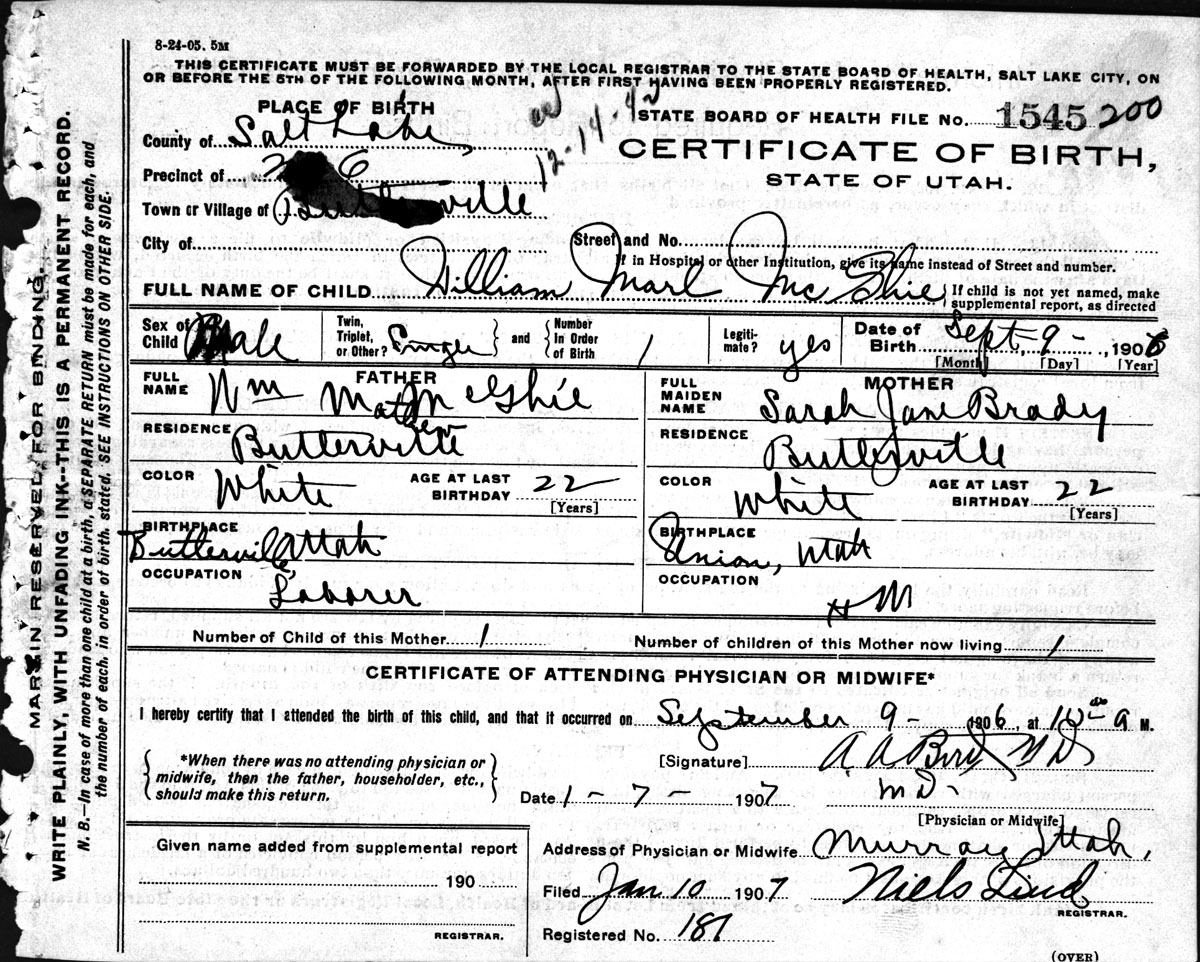 8-24-05. 5M
THIS CERTIFICATE MUST BE FORWARDED BY THE LOCAL REGISTRAR TO THE STATE BOARD OF HEALTH, SALT LAKE CITY, ON
OR BEFORE THE 5TH OF THE FOLLOWING MONTH, AFTER FIRST HAVING BEEN PROPERLY REGISTERED.
PLACE OF BIRTH
12-14-42
STATE BOARD OF HEALTH FILE No. 1545 200
County of Salt Lake
CERTIFICATE OF BIRTH,
Precinct of 6
STATE OF UTAH.
Town or Village of Butlerville
City of Street and No.
If in Hospital or other Institution, give its name instead of Street and number.
FULL NAME OF CHILD William Marl McGhie
If child is not yet named, make
supplemental report, as directed
Sex of Child Male Twin, Triplet, or Other? Single and Number In Order of Birth 1 Legiti-mate? yes Date of Birth Sept 9 - , 1906
[Month] [Day] [Year]
FATHER
FULL NAME Wm Mathew McGhie
RESIDENCE Butlerville
COLOR White AGE AT LAST BIRTHDAY 22
[Years]
BIRTHPLACE
Butlerville, Utah
OCCUPATION
Laborer
MOTHER
FULL MAIDEN NAME Sarah Jane Brady
RESIDENCE Butlerville
COLOR White AGE AT LAST BIRTHDAY 22
[Years]
BIRTHPLACE
Union, Utah
OCCUPATION
HM
Number of Child of this Mother 1 Number of children of this Mother now living 1
CERTIFICATE OF ATTENDING PHYSICIAN OR MIDWIFE*
I hereby certify that I attended the birth of this child, and that it occurred on September 9 - 1906, at 10 a M.
*When there was no attending physician or
midwife, then the father, householder, etc.,
should make this return.
[Signature] A A Bird MD
Date 1 - 7 - 1907 MD.
[Physician or Midwife]
Given name added from supplemental report
190
REGISTRAR.
Address of Physician or Midwife Murray Utah,
Filed Jan 10 1907 Niels Lind
REGISTRAR.
Registered No. 187
(OVER)
MARGIN RESERVED FOR BINDING.
WRITE PLAINLY, WITH UNFADING INK--THIS IS A PERMANENT RECORD.
N. B.—In case of more than one child at a birth, a SEPARATE RETURN must be made for each, and
the number of each, in order of birth, stated. SEE INSTRUCTIONS ON OTHER SIDE.